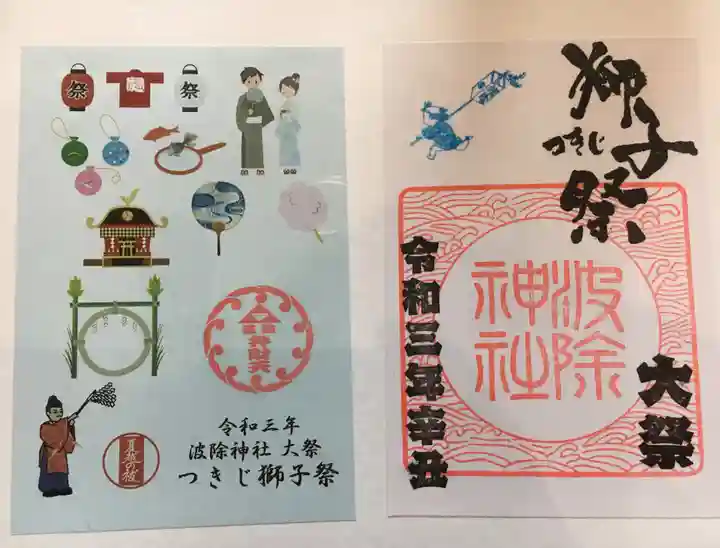 祭
祭
弁財天
夏越の祓
令和三年
波除神社 大祭
つきじ獅子祭
獅子祭
つきじ
波除
神社
大祭
令和三年辛丑